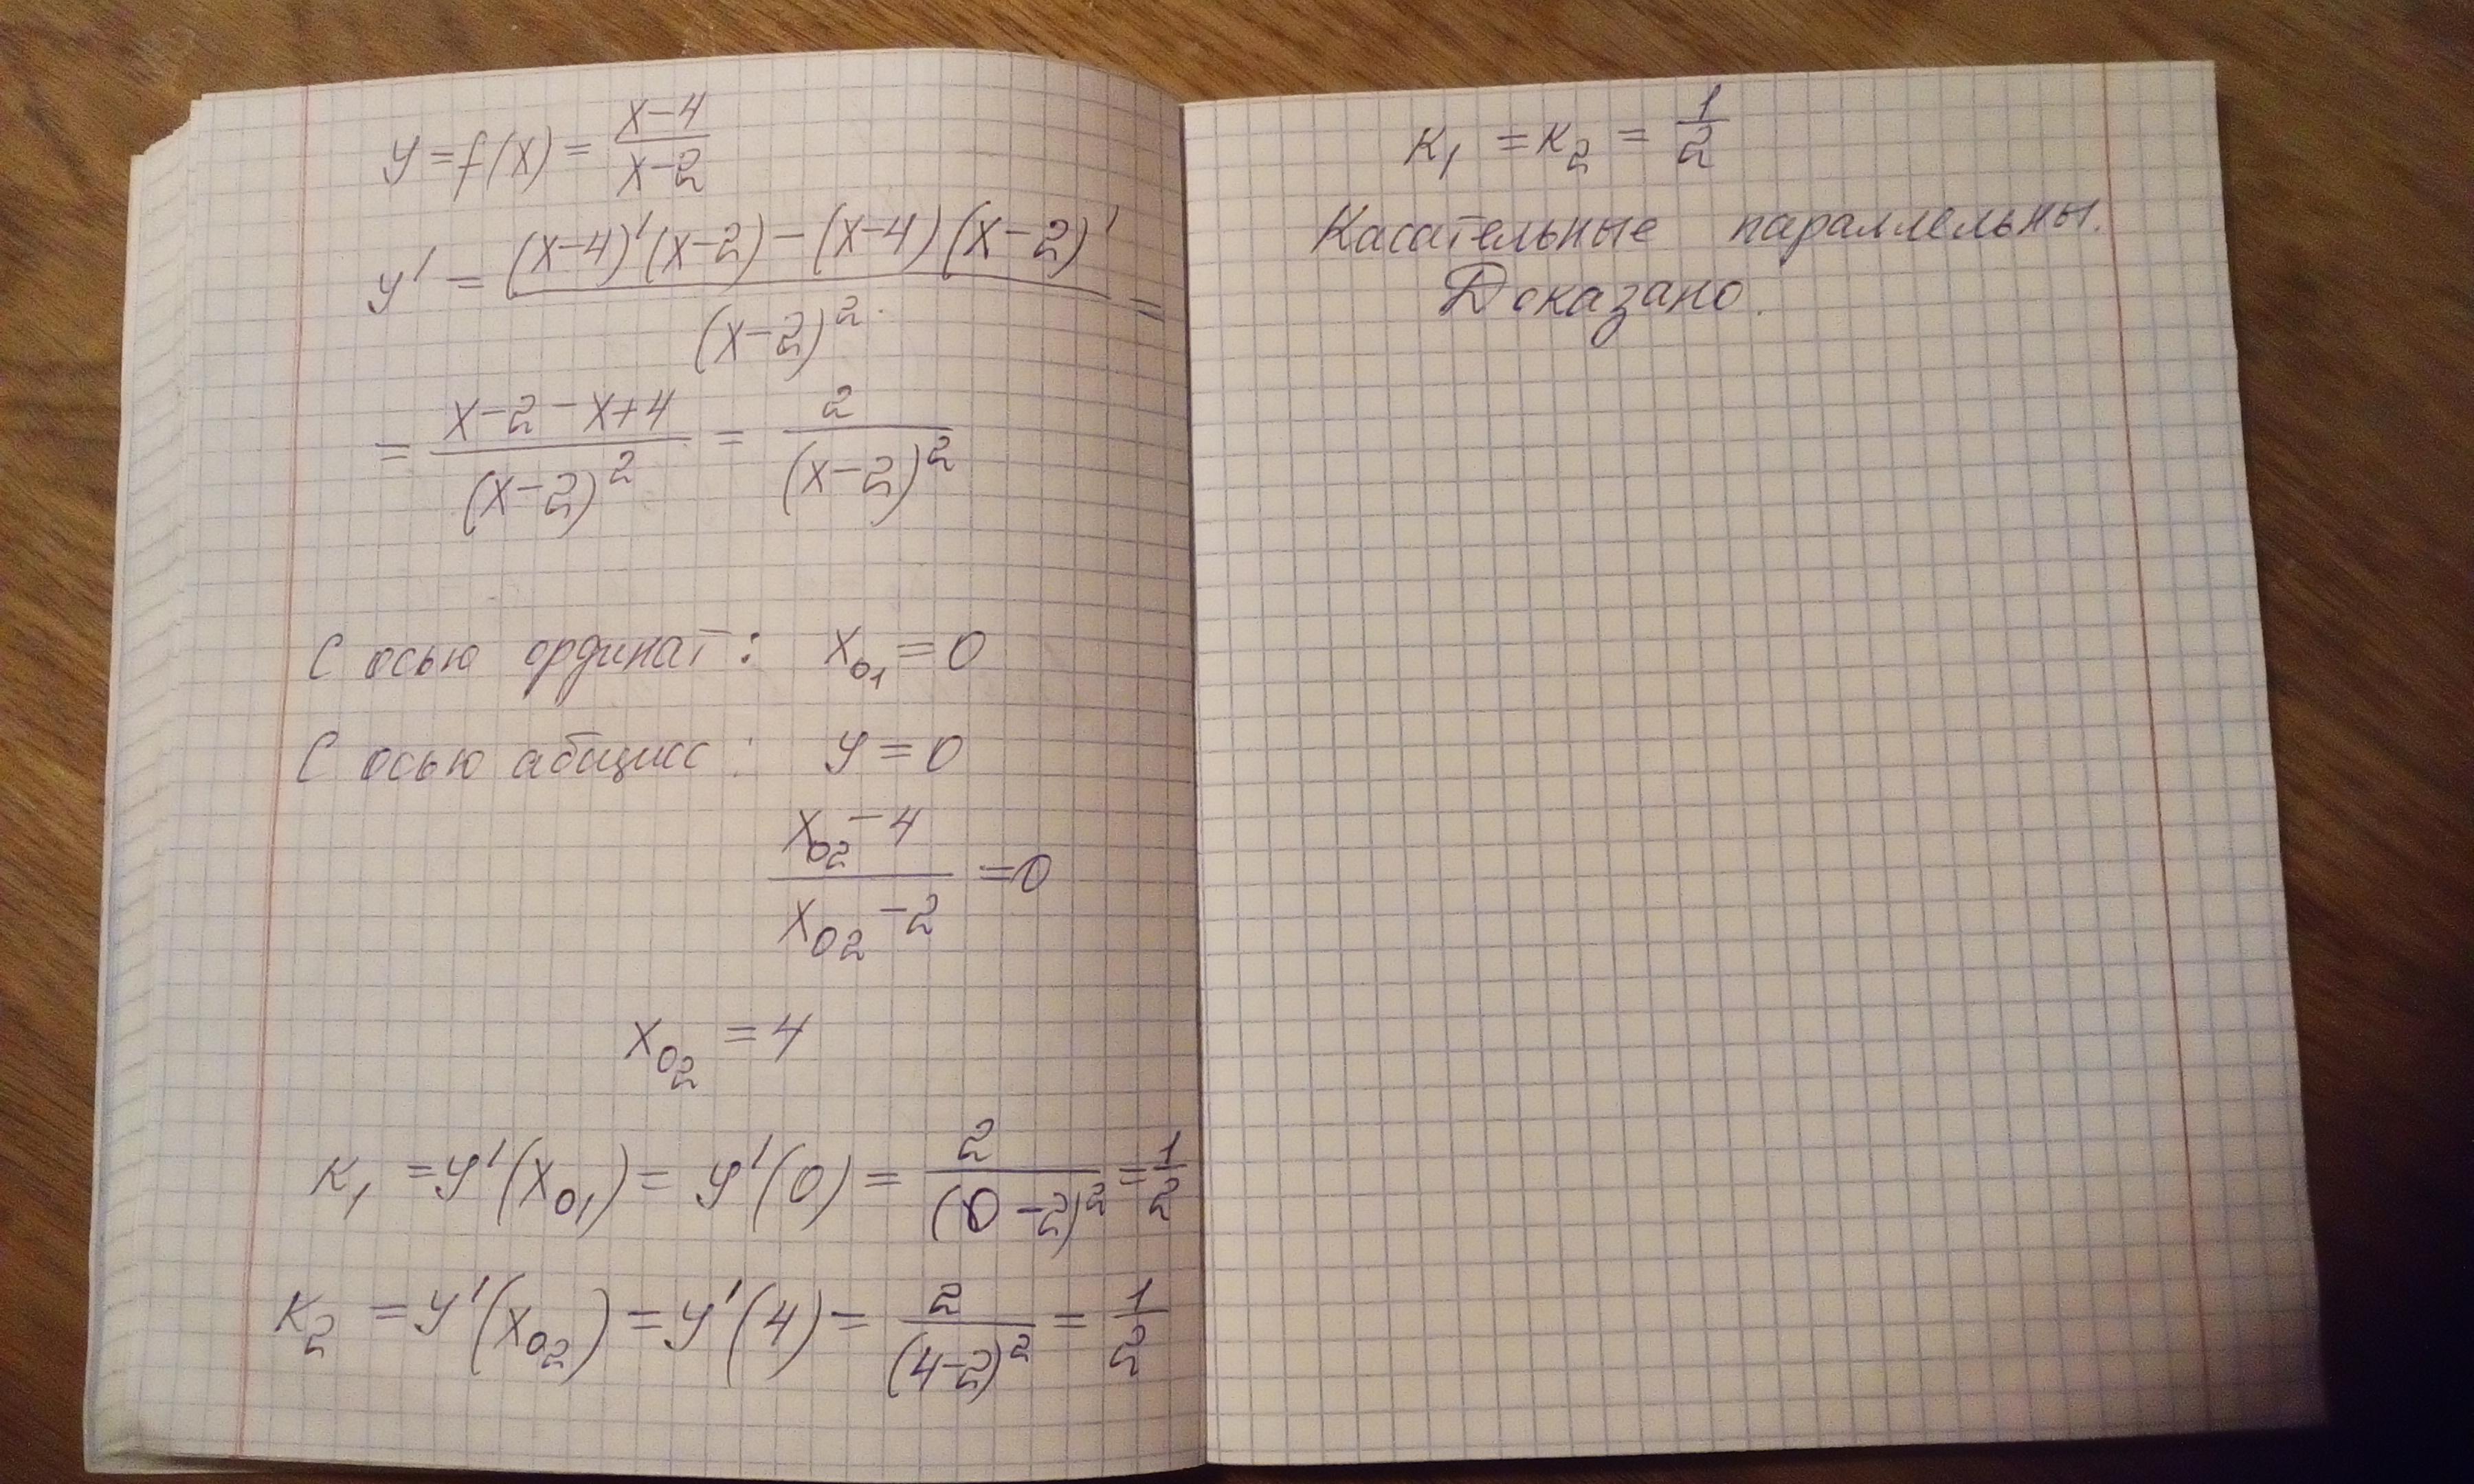 y = f(x) = (x-4)/(x-2)
y' = ((x-4)'(x-2) - (x-4)(x-2)')/(x-2)² =
= (x-2-x+4)/(x-2)² = 2/(x-2)²
С осью ординат: x₀₁ = 0
С осью абсцисс: y = 0
(x₀₂-4)/(x₀₂-2) = 0
x₀₂ = 4
K₁ = y'(x₀₁) = y'(0) = 2/(0-2)² = 1/2
K₂ = y'(x₀₂) = y'(4) = 2/(4-2)² = 1/2
K₁ = K₂ = 1/2
Касательные параллельны.
Доказано.